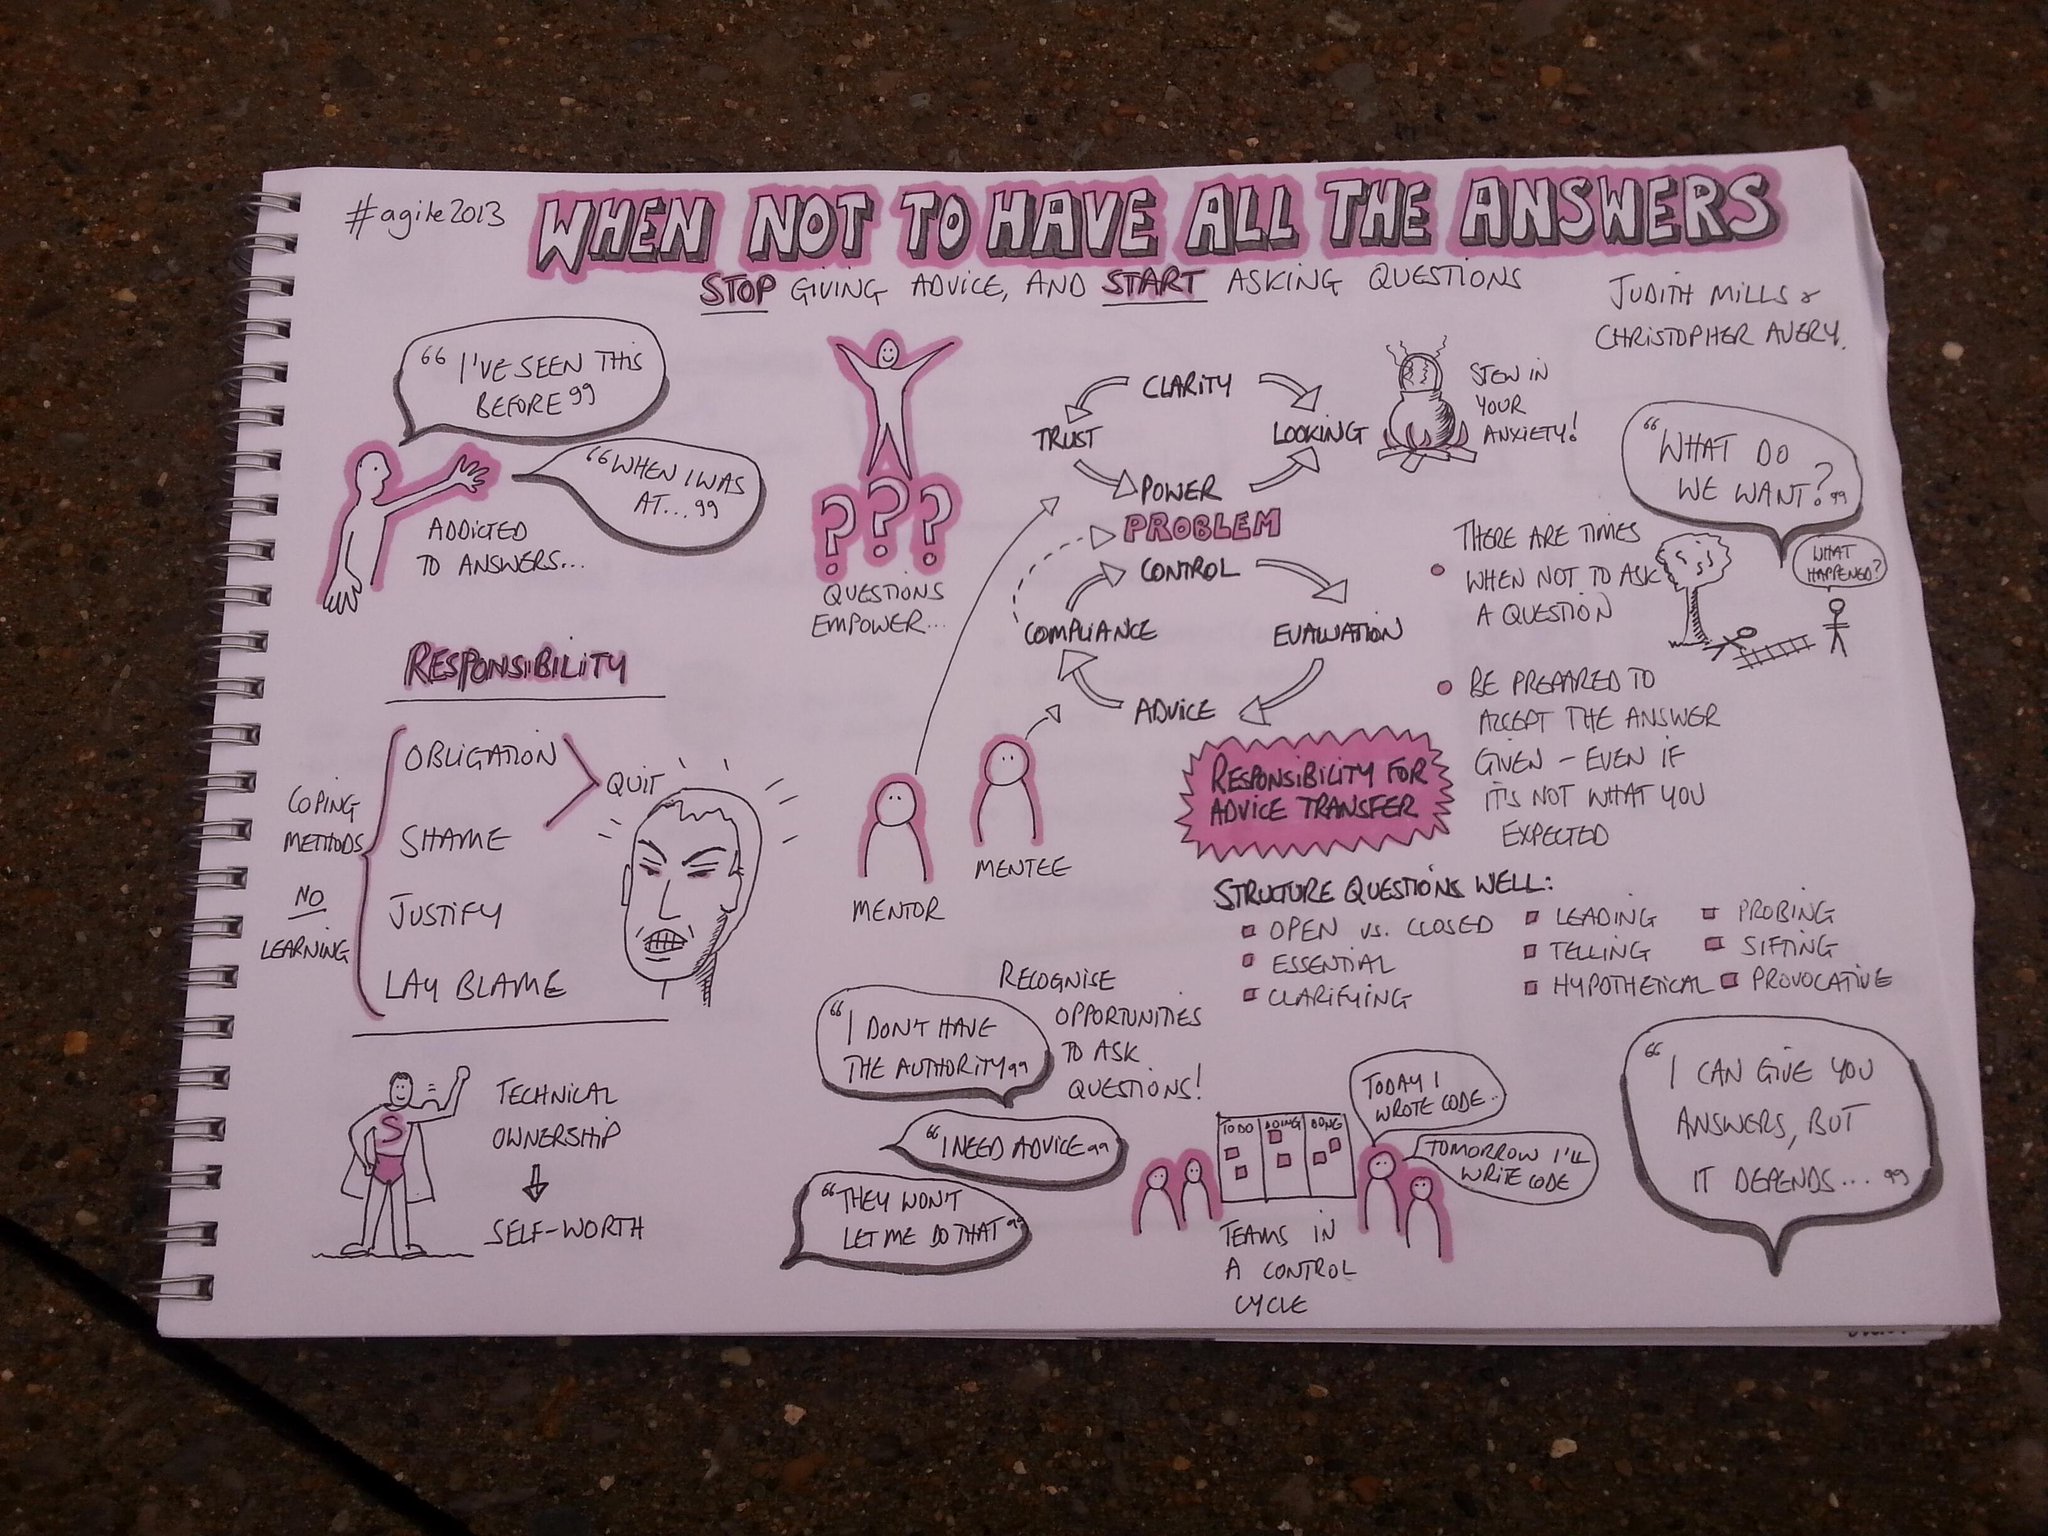 #agile2013
WHEN NOT TO HAVE ALL THE ANSWERS
STOP GIVING ADVICE, AND START ASKING QUESTIONS
JUDITH MILLS &
CHRISTOPHER AVERY.
“I'VE SEEN THIS
BEFORE”
“WHEN I WAS
AT...”
ADDICTED
TO ANSWERS...
???
QUESTIONS
EMPOWER...
CLARITY
TRUST
LOOKING
POWER
PROBLEM
CONTROL
COMPLIANCE
EVALUATION
ADVICE
STEW IN
YOUR
ANXIETY!
“WHAT DO
WE WANT?”
WHAT
HAPPENED?
THERE ARE TIMES
WHEN NOT TO ASK
A QUESTION
BE PREPARED TO
ACCEPT THE ANSWER
GIVEN – EVEN IF
IT'S NOT WHAT YOU
EXPECTED
RESPONSIBILITY
COPING
METHODS
NO
LEARNING
OBLIGATION
SHAME
QUIT
JUSTIFY
LAY BLAME
MENTOR
MENTEE
RESPONSIBILITY FOR
ADVICE TRANSFER
STRUCTURE QUESTIONS WELL:
OPEN vs. CLOSED
ESSENTIAL
CLARIFYING
LEADING
TELLING
HYPOTHETICAL
PROBING
SIFTING
PROVOCATIVE
S
TECHNICAL
OWNERSHIP
SELF-WORTH
RECOGNISE
OPPORTUNITIES
TO ASK
QUESTIONS!
“I DON'T HAVE
THE AUTHORITY”
“I NEED ADVICE”
“THEY WON'T
LET ME DO THAT”
TO DO DOING DONE
TODAY I
WROTE CODE..
TOMORROW I'LL
WRITE CODE
TEAMS IN
A CONTROL
CYCLE
“I CAN GIVE YOU
ANSWERS, BUT
IT DEPENDS...”